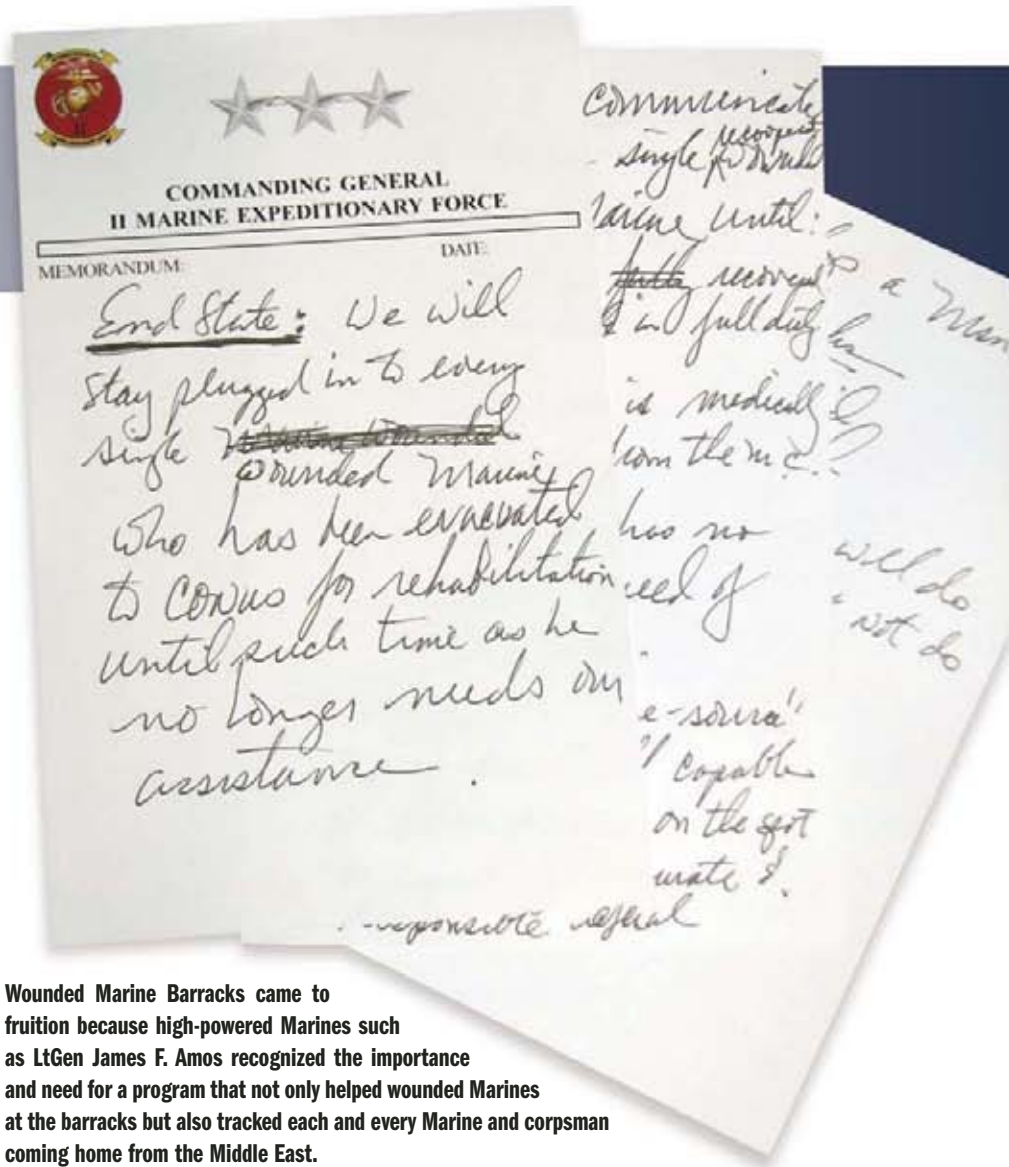 COMMANDING GENERAL
II MARINE EXPEDITIONARY FORCE
MEMORANDUM:
DATE:
End State: We will
stay plugged in to every
single
wounded Marine
who has been evacuated
to CONUS for rehabilitation
until such time as he
no longer needs our
assistance.
communicate
single
until:
recovered
full duty
is medically
from the M.C.
has no
need of
capable
on the spot
responsible referral
a
will do
not do
Wounded Marine Barracks came to
fruition because high-powered Marines such
as LtGen James F. Amos recognized the importance
and need for a program that not only helped wounded Marines
at the barracks but also tracked each and every Marine and corpsman
coming home from the Middle East.